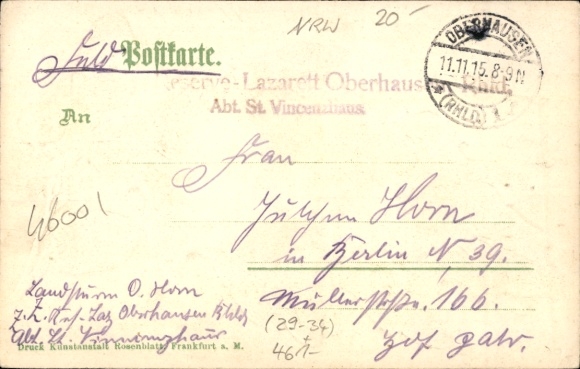 NRW 20-
Feld Postkarte.
OBERHAUSEN
11.11.15. 8-9 N
* (RHLD)
Reserve-Lazarett Oberhausen Rhld.
Abt. St. Vincenzhaus
An
Frau
Julchen Horn
in Berlin N, 39.
Müllerstraße 166.
46001
Landsturm O. Horn
z. Z. Res. Laz Oberhausen Rhld
Abt. St. Vinzenzhaus
(29-34)
46 1-
Druck Kunstanstalt Rosenblatt, Frankfurt a. M.